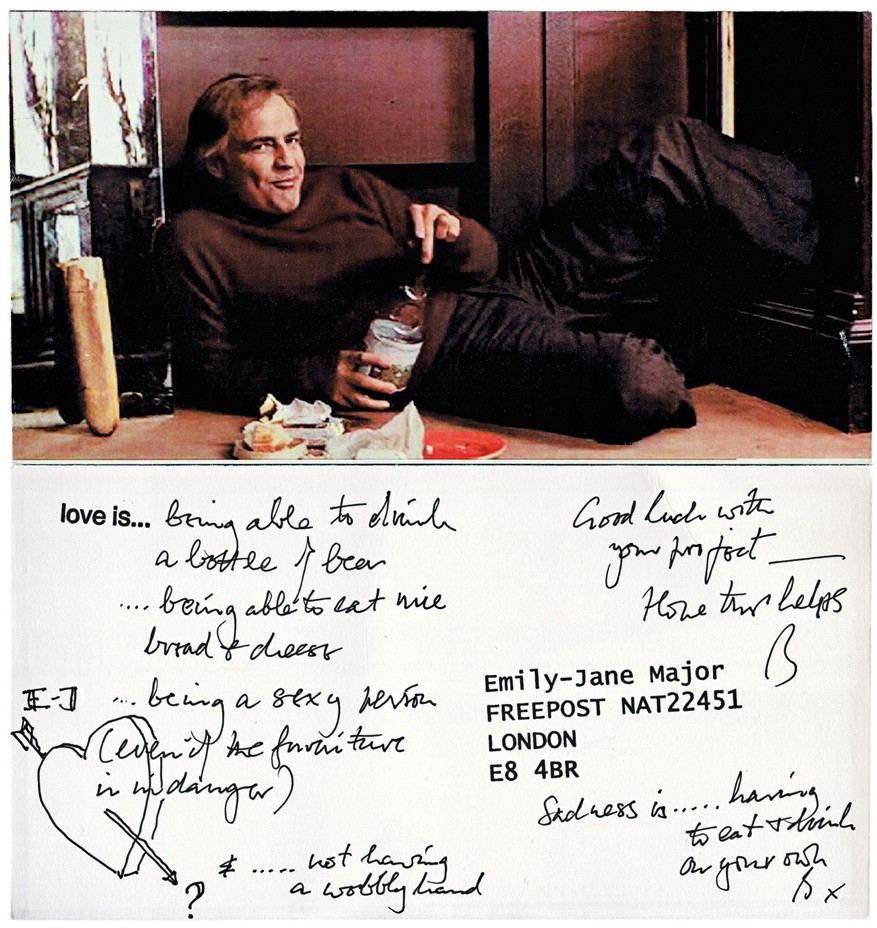 love is... being able to drink
a bottle of beer
.... being able to eat nice
bread & cheese
E-J ... being a sexy person
(even if the furniture
is in danger)
& ..... not having
a wobbly hand
?
Good luck with
your project
Hope this helps
B
Emily-Jane Major
FREEPOST NAT22451
LONDON
E8 4BR
Sadness is..... having
to eat & drink
on your own
B x